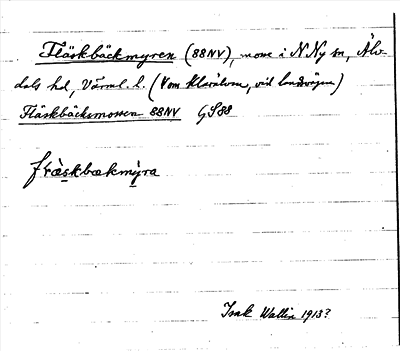 Fläskbäckmyren (88NV), mosse i N Ny sn, Älv-
dals hd, Värml. l. (V om Klarälven, vid landsvägen)
Fläskbäcksmossen 88NV GS88
fræ̀skbækmy̆ra
Isak Wallin 1913?